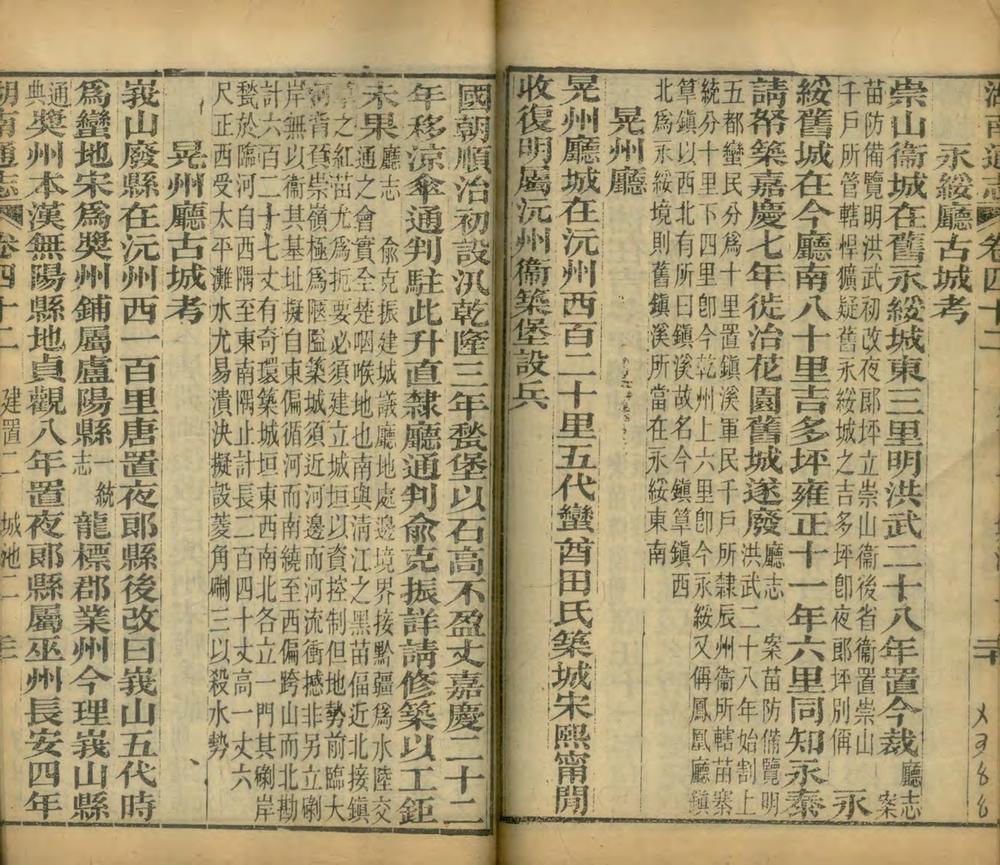 湖南通志 卷四十二
永綏廳古城考
崇山衞城在舊永綏城東三里明洪武二十八年置今裁廳志 案
苗防備覽明洪武初改夜郞坪立崇山衞後省衞置崇山
千戸所管轄桿獷疑舊永綏城之吉多坪卽夜郞坪別偁 永
綏舊城在今廳南八十里吉多坪雍正十一年六里同知永泰
請帑築嘉慶七年徙治花園舊城遂廢廳志 案苗防備覽明
洪武二十八年始割上
五都蠻民分爲十里置鎮溪軍民千戸所隸辰州衞所轄苗寨
統分十里下四里卽今乾州上六里卽今永綏又偁鳳凰廳鎮
筸鎮以西北有所曰鎮溪故名今鎮筸鎮西
北爲永綏境則舊鎮溪所當在永綏東南
晃州廳
晃州廳城在沅州西百二十里五代蠻酋田氏築城宋熙甯閒
收復明屬沅州衞築堡設兵
國朝順治初設汛乾隆三年甃堡以石高不盈丈嘉慶二十二
年移涼傘通判駐此升直隸廳通判俞克振詳請修築以工鉅
未果廳志 俞克振建城議廳地處邊境界接黔疆爲水陸交
通之會實全楚咽喉地也南與清江之黑苗偪近北接鎮
之紅苗尤爲扼要必須建立城垣以資控制但地勢前臨大
河背負崇領極爲隘築城須近河邊而河流衝撼非另立磡
岸無以衞其基址擬自東偏循河而南繞至西偏跨山而北勘
計六百二十七丈有奇環築城垣東西南北各立一門其磡岸
甃於臨河自西隅至東南隅止計長二百四十丈高一丈六
尺正西受太平灘水尤易潰決擬設菱角磡三以殺水勢
晃州廳古城考
峩山廢縣在沅州西一百里唐置夜郞縣後改曰峩山五代時
爲蠻地宋爲奬州鋪屬盧陽縣一統志 龍標郡業州今理峩山縣
通典 奬州本漢無陽縣地貞觀八年置夜郞縣屬巫州長安四年
湖南通志 卷四十二 建置二 城池二